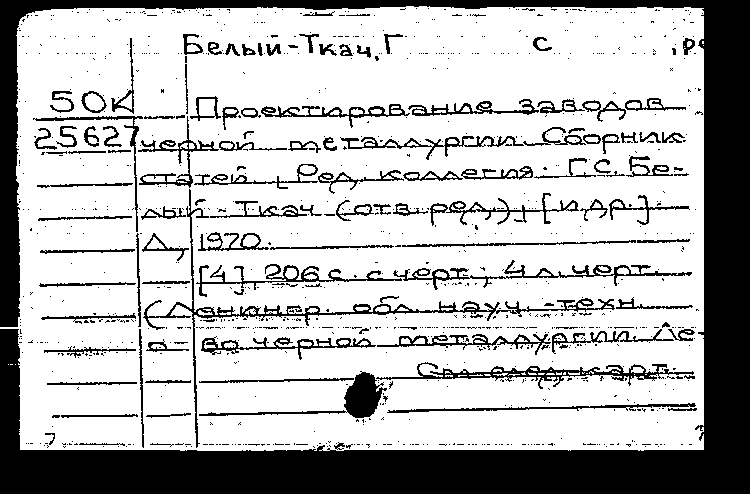 Белый-Ткач, Г С , ре
50К Проектирование заводов
25627 черной металлургии. Сборник
статей [Ред. коллегия: Г.С. Бе-
лый - Ткач (отв. ред.) [и др.].
Л., 1970.
[4], 206 с. с черт.; 4 л. черт.
(Ленингр. обл. науч. -техн.
о-во черной металлургии. Ле-
См. след. карт.